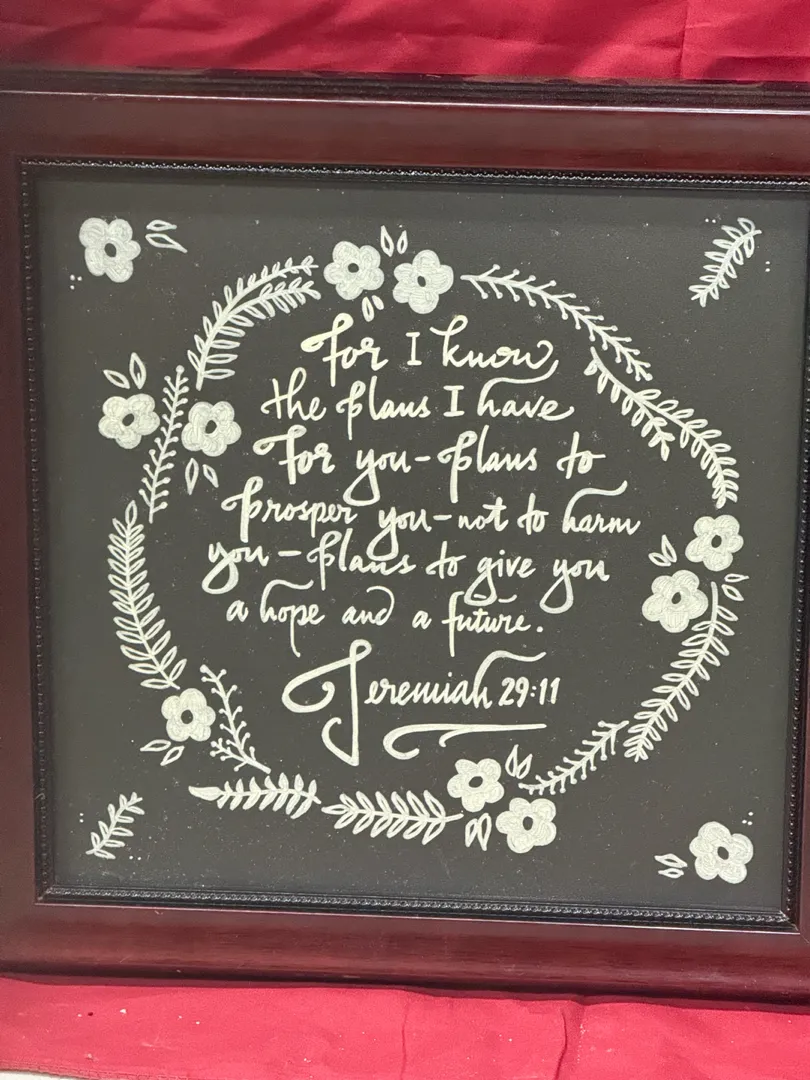 For I know
the plans I have
For you-plans to
prosper you-not to harm
you-plans to give you
a hope and a future.
Jeremiah 29:11